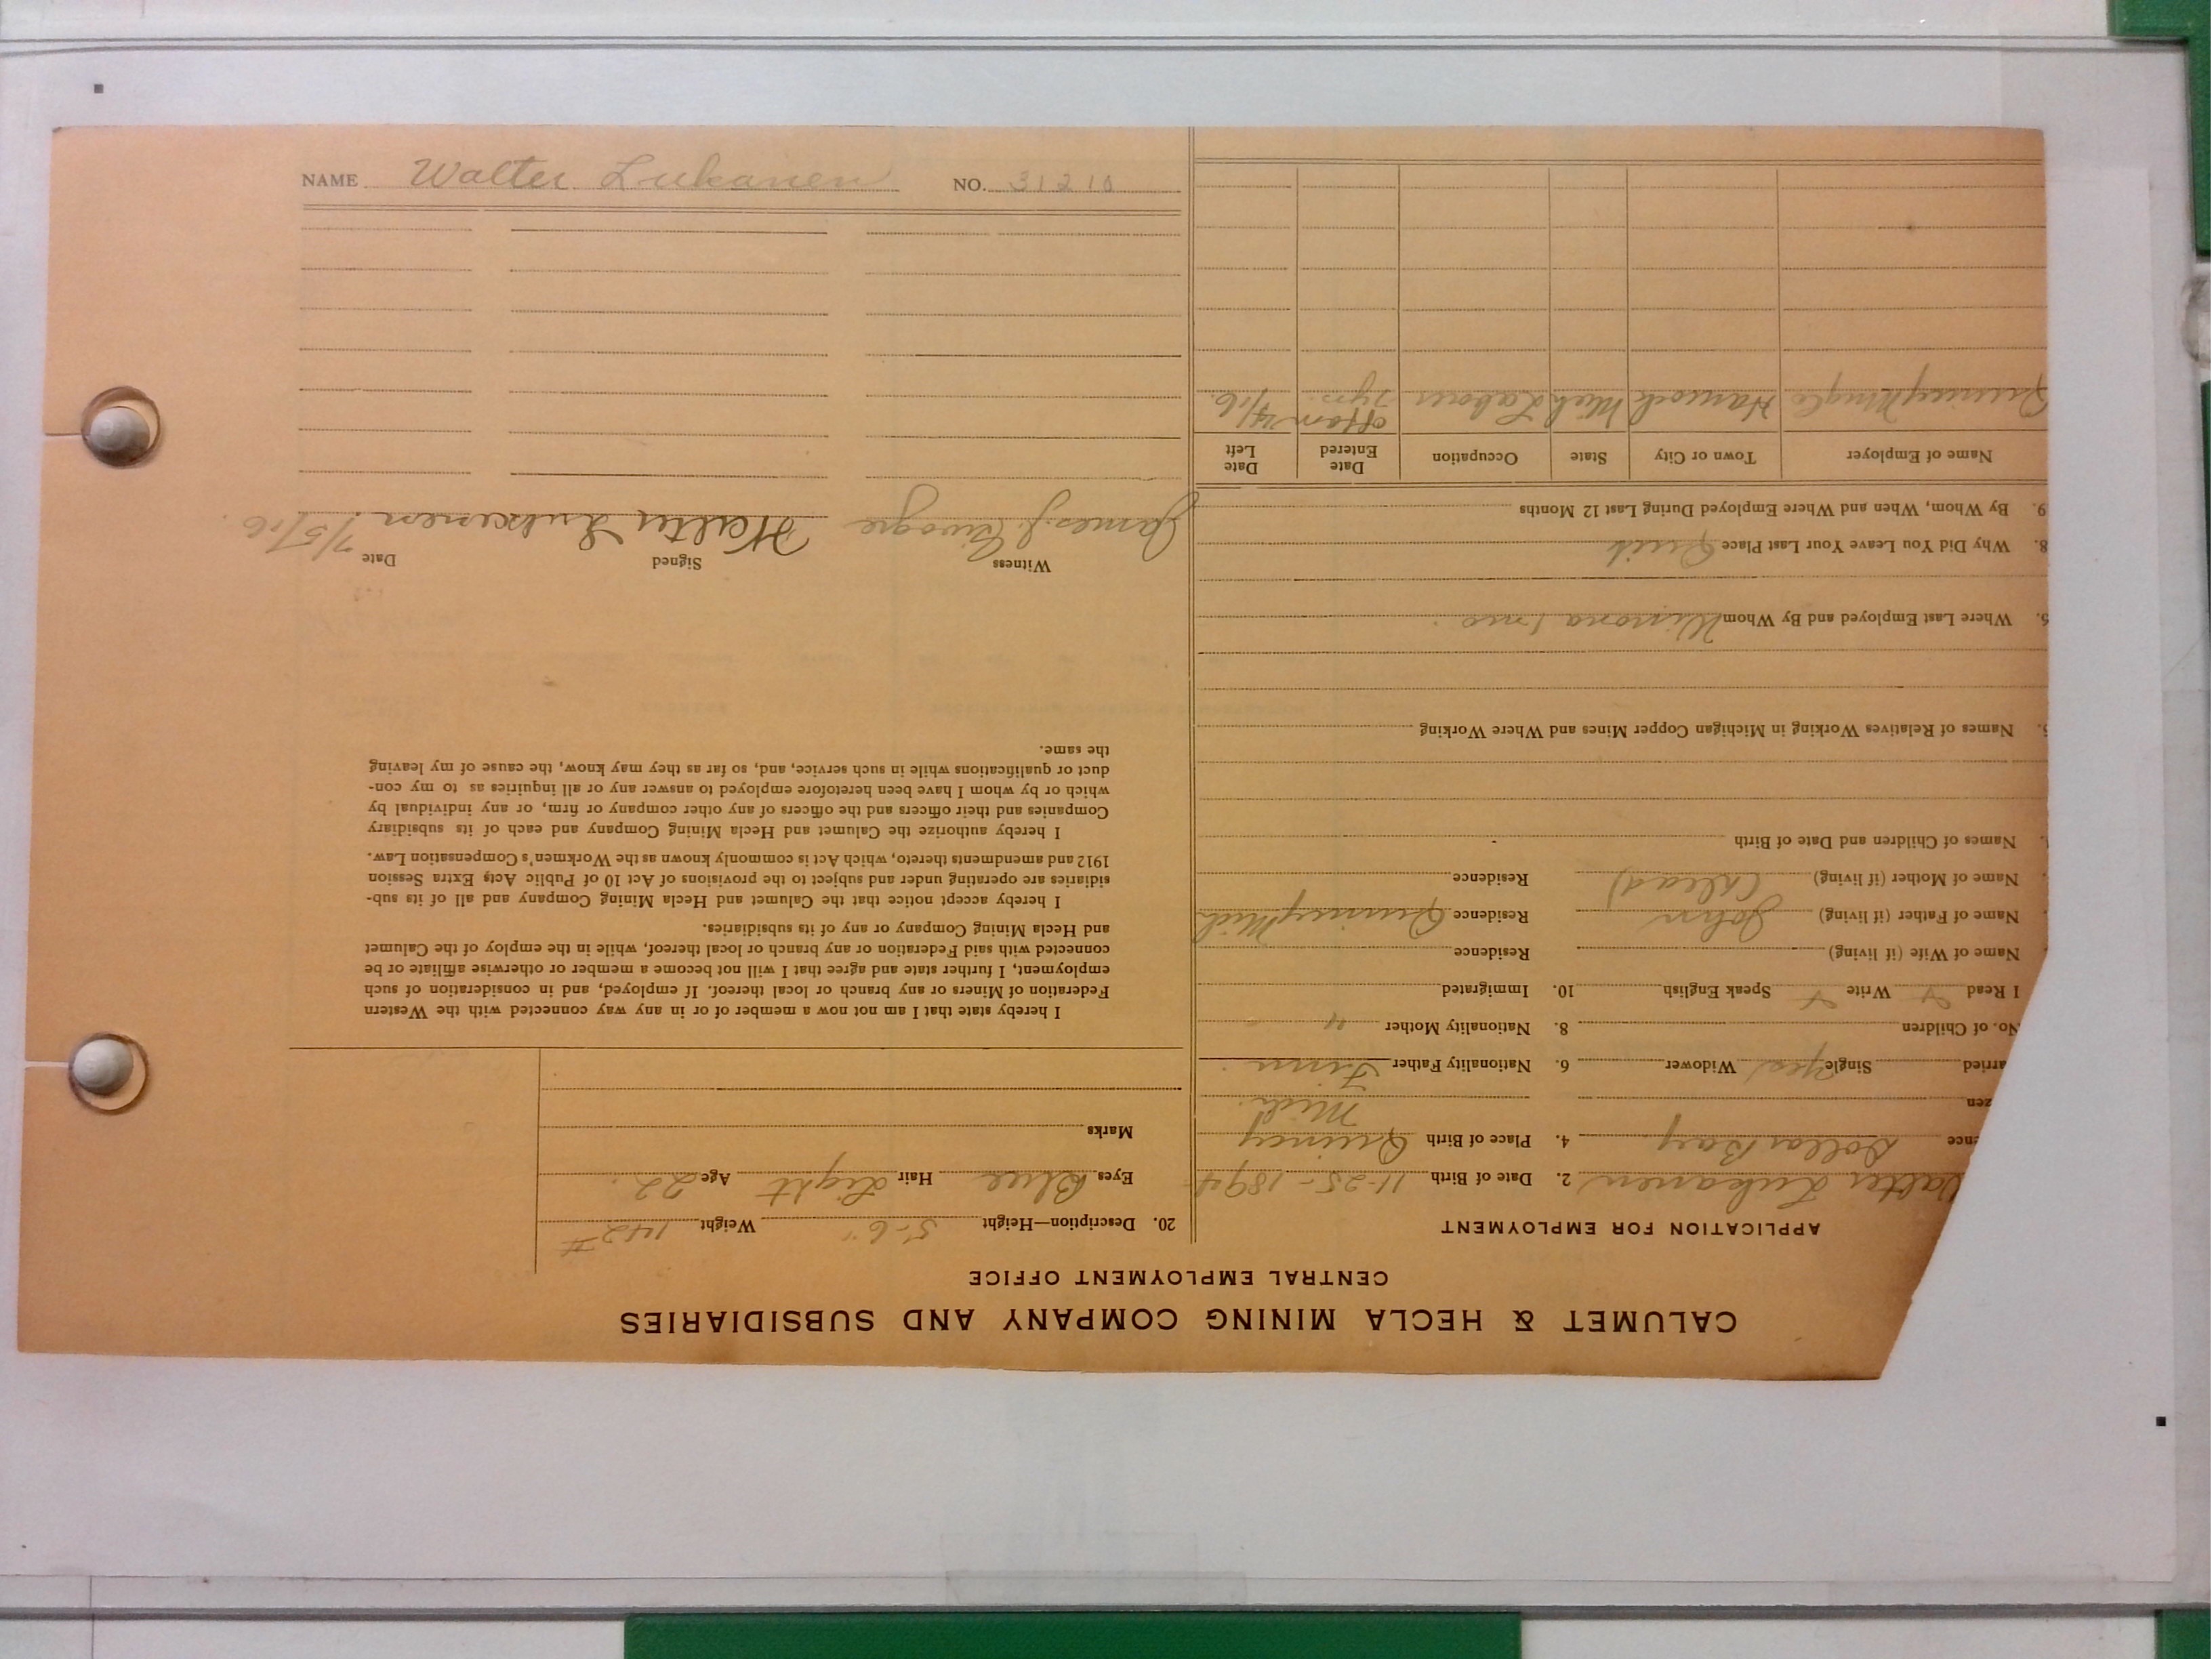 NAME Walter Lukanen NO. 31210
CALUMET & HECLA MINING COMPANY AND SUBSIDIARIES
CENTRAL EMPLOYMENT OFFICE
APPLICATION FOR EMPLOYMENT
Walter Lukanen 2. Date of Birth 11-25-1894
ence Dollar Bay 4. Place of Birth Quincy
zen Mich.
arried Single Yes Widower 6. Nationality Father Finn.
No. of Children 8. Nationality Mother "
I Read Write Speak English 10. Immigrated
Name of Wife (if living) Residence
Name of Father (if living) John Residence Quincy Mich
Name of Mother (if living) (Dead) Residence
Names of Children and Date of Birth
Names of Relatives Working in Michigan Copper Mines and Where Working
6. Where Last Employed and By Whom Winona 1 mo.
8. Why Did You Leave Your Last Place Quit
9. By Whom, When and Where Employed During Last 12 Months
Name of Employer Town or City State Occupation Date Entered Date Left
Quincy Mng Co Hancock Mich Laborer yrs. /16.
20. Description—Height 5-6" Weight 142#
Eyes Blue Hair Light Age 22.
Marks
I hereby state that I am not now a member of or in any way connected with the Western
Federation of Miners or any branch or local thereof. If employed, and in consideration of such
employment, I further state and agree that I will not become a member or otherwise affiliate or be
connected with said Federation or any branch or local thereof, while in the employ of the Calumet
and Hecla Mining Company or any of its subsidiaries.
I hereby accept notice that the Calumet and Hecla Mining Company and all of its sub-
sidiaries are operating under and subject to the provisions of Act 10 of Public Acts Extra Session
1912 and amendments thereto, which Act is commonly known as the Workmen's Compensation Law.
I hereby authorize the Calumet and Hecla Mining Company and each of its subsidiary
Companies and their officers and the officers of any other company or firm, or any individual by
which or by whom I have been heretofore employed to answer any or all inquiries as to my con-
duct or qualifications while in such service, and, so far as they may know, the cause of my leaving
the same.
Witness Signed Date
James J. Walter Lukanen. 7/5/16.